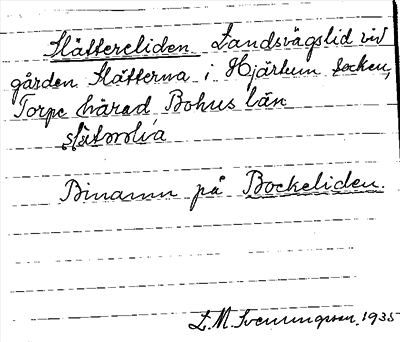 Slättereliden Landsvägslid vid
gården Slätterna i Hjärtum socken,
Torpe härad Bohus län
Binamn på Bockeliden.
L. M. Svenungsson. 1935